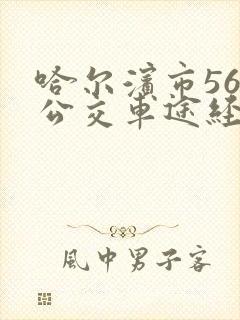 哈尔滨市56
公交车途经
風中男子客